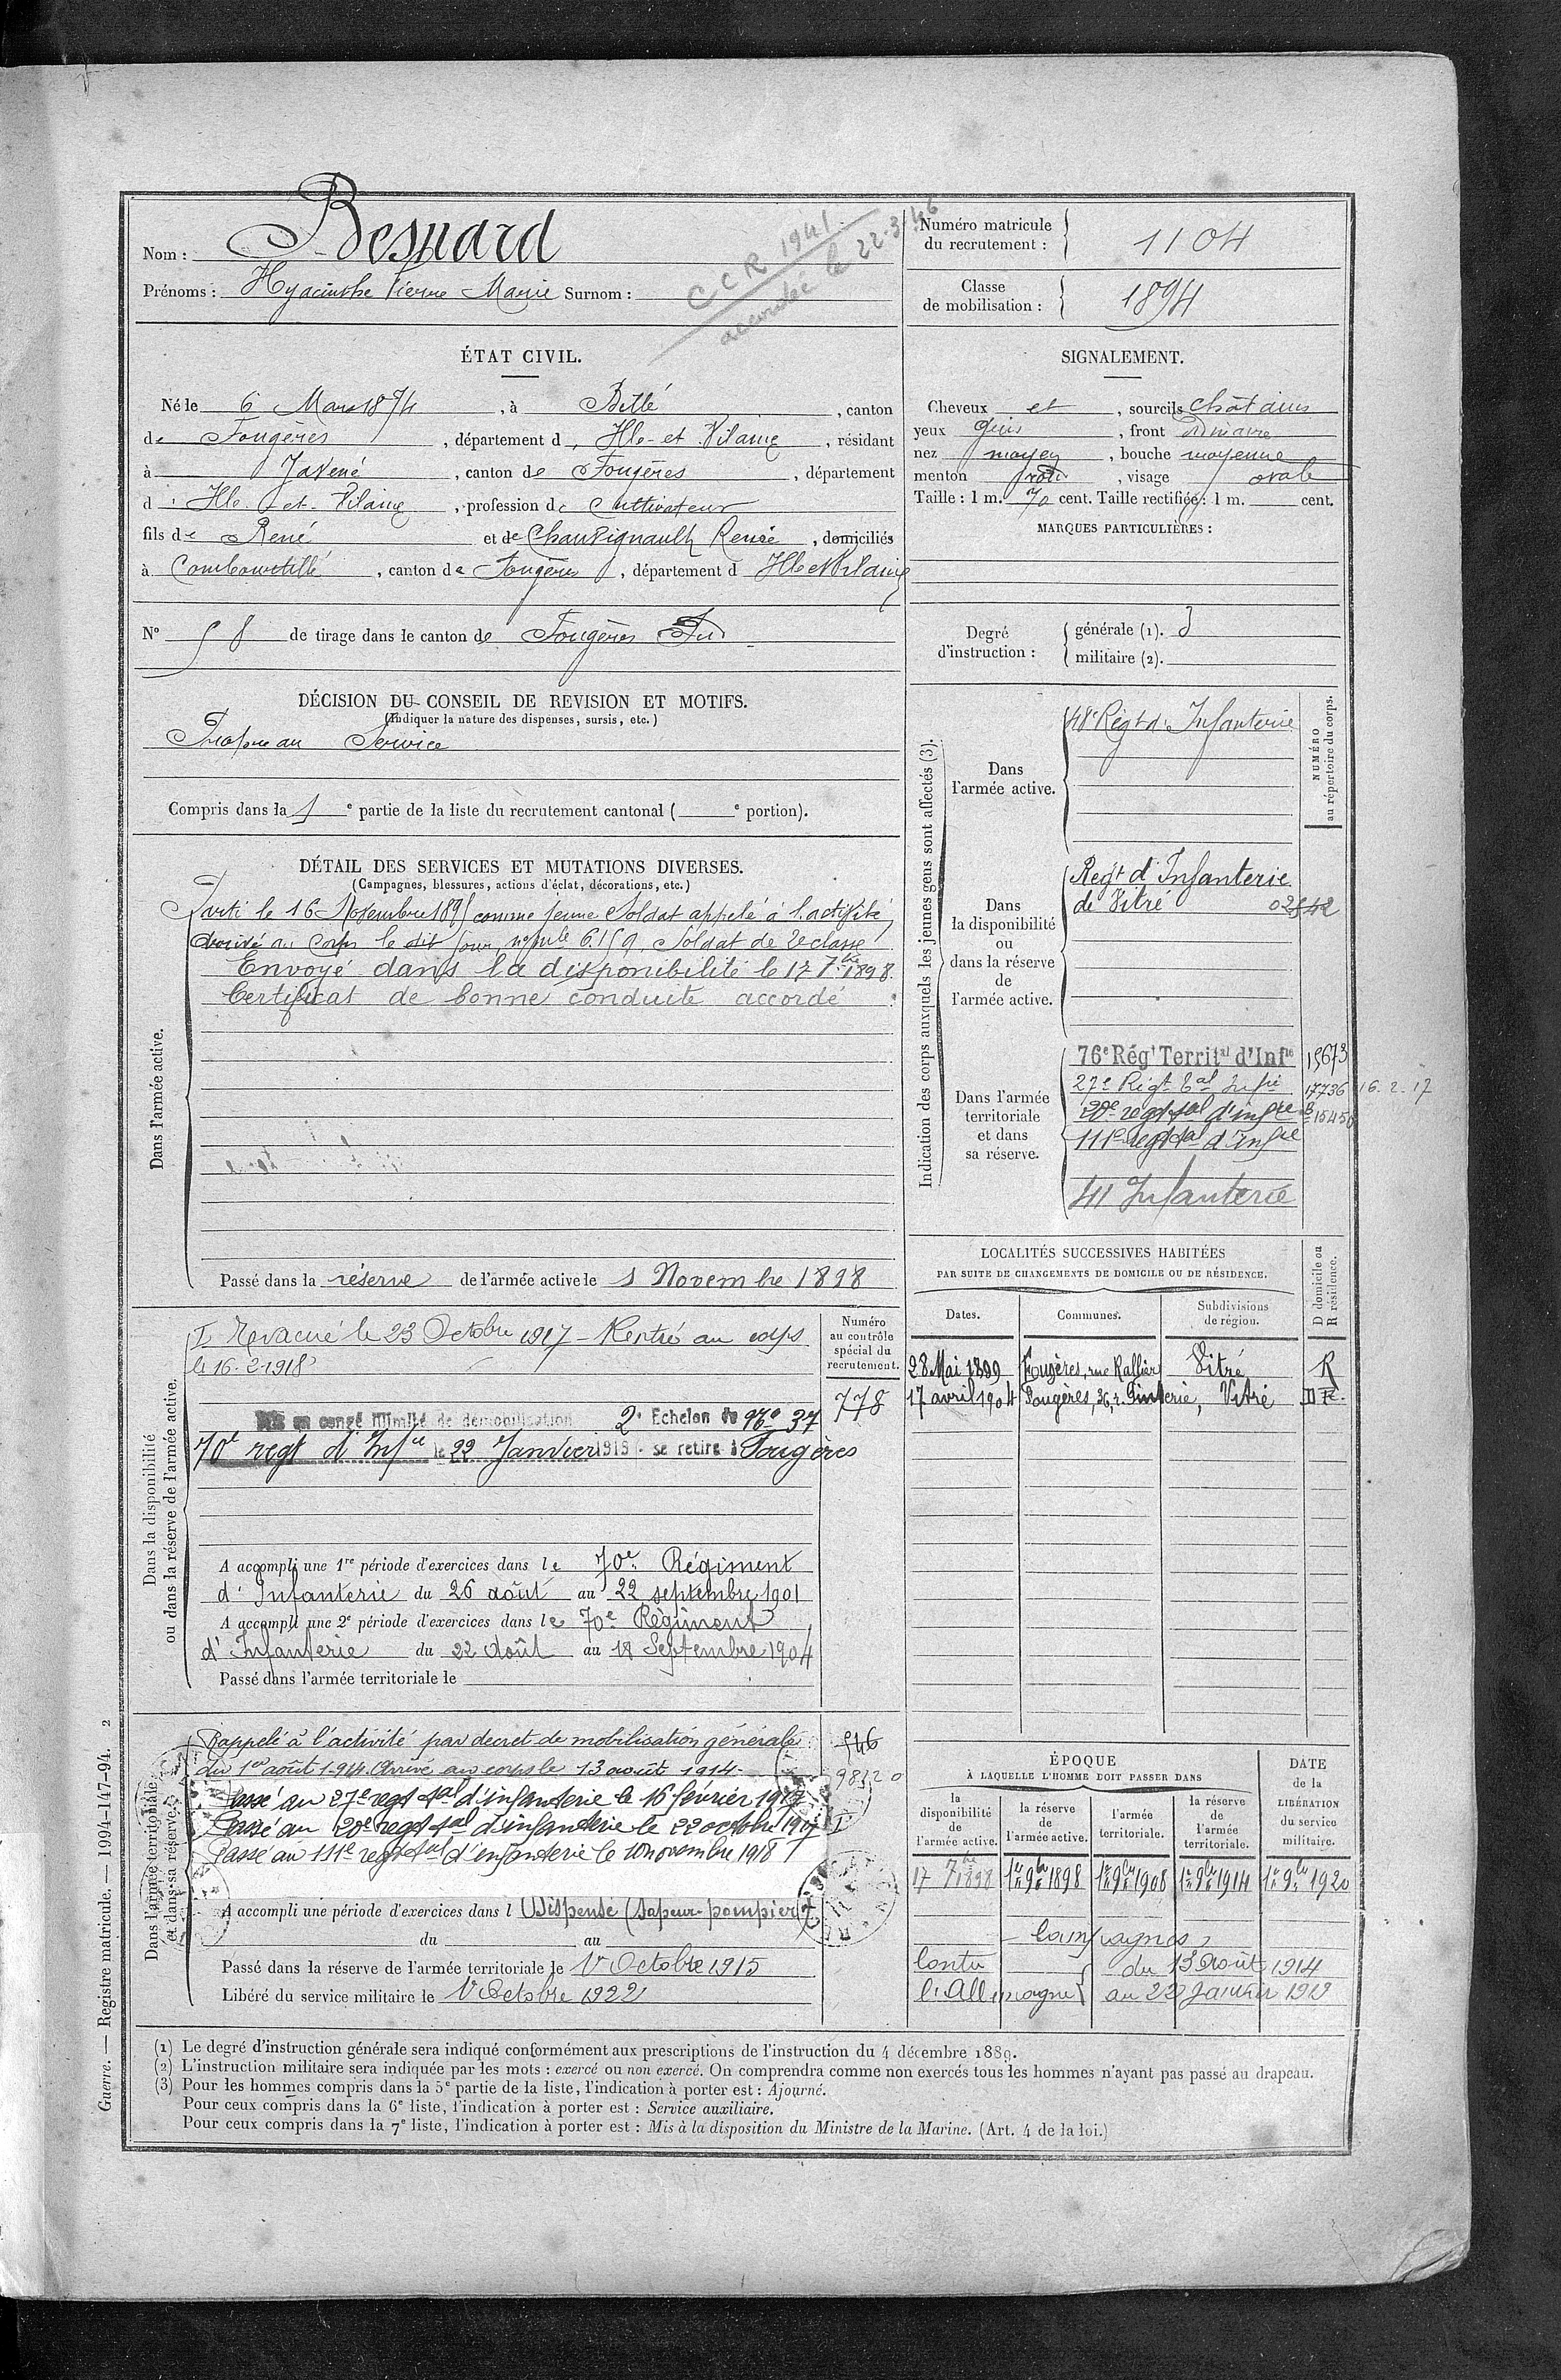 Nom : Besnard
Prénoms : Hyacinthe Pierre Marie Surnom :
CCR 1941
accordée le 22-3-46
Numéro matricule du recrutement : 1104
Classe de mobilisation : 1894
ÉTAT CIVIL.
Né le 6 Mars 1874, à Billé, canton
de Fougères, département d'Ille-et-Vilaine, résidant
à Javené, canton de Fougères, département
d'Ille-et-Vilaine, profession de Cultivateur
fils de René et de Chauvignault Renée, domiciliés
à Combourtillé, canton de Fougères, département d'Ille et Vilaine
N° 58 de tirage dans le canton de Fougères Sud
SIGNALEMENT.
Cheveux et, sourcils châtains
yeux gris, front ordinaire
nez moyen, bouche moyenne
menton rond, visage ovale
Taille : 1 m. 70 cent. Taille rectifiée : 1 m. cent.
MARQUES PARTICULIÈRES :
Degré d'instruction : générale (1). 3
militaire (2).
DÉCISION DU CONSEIL DE REVISION ET MOTIFS.
(Indiquer la nature des dispenses, sursis, etc.)
Propre au Service
Compris dans la 1e partie de la liste du recrutement cantonal ( e portion).
DÉTAIL DES SERVICES ET MUTATIONS DIVERSES.
(Campagnes, blessures, actions d'éclat, décorations, etc.)
Dans l'armée active.
Parti le 16 Novembre 1895 comme jeune Soldat appelé à l'activité
Arrivé au Corps le dit jour, no mle 6159, Soldat de 2e classe
Envoyé dans la disponibilité le 17 7bre 1898.
Certificat de bonne conduite accordé.
Passé dans la réserve de l'armée active le 1 Novembre 1898
Indication des corps auxquels les jeunes gens sont affectés (3).
NUMÉRO au répertoire du corps.
Dans l'armée active.
48e Régt d'Infanterie
Dans la disponibilité ou dans la réserve de l'armée active.
Regt d'Infanterie
de Vitré 02542
Dans l'armée territoriale et dans sa réserve.
76e Régt Territal d'Infie 15673
27e Régt tal Infie 17736 16.2.17
20e regt tal d'infie 15450
111e regt tal d'infie
41 Infanterie
LOCALITÉS SUCCESSIVES HABITÉES
PAR SUITE DE CHANGEMENTS DE DOMICILE OU DE RÉSIDENCE.
D domicile ou R résidence.
Dates. Communes. Subdivisions de région.
28 Mai 1899 Fougères, rue Rallier Vitré R
17 avril 1904 Fougères, 36, r. Pinterie, Vitré D
Dans la disponibilité ou dans la réserve de l'armée active.
Numéro au contrôle spécial du recrutement.
778
Evacué le 23 Octobre 1917 – Rentré au corps
le 16-2-1918
Mis en congé illimité de démobilisation 2e Echelon No 37
70e regt d'Infie le 22 Janvier 1919 - se retire à Fougères
A accompli une 1re période d'exercices dans le 70e Régiment
d'Infanterie du 26 août au 22 septembre 1901
A accompli une 2e période d'exercices dans le 70e Régiment
d'Infanterie du 22 Août au 18 Septembre 1904
Passé dans l'armée territoriale le
Dans l'armée territoriale et dans sa réserve.
Rappelé à l'activité par decret de mobilisation générale
du 1er août 1914. Arrivé au corps le 13 août 1914.
Passé au 27e regt tal d'infanterie le 16 février 1917
Passé au 20e regt tal d'infanterie le 22 octobre 1917
Passé au 111e regt tal d'infanterie le 10 novembre 1918
546
A accompli une période d'exercices dans l Dispensé (Sapeur-pompier)
du au
Passé dans la réserve de l'armée territoriale le 1er Octobre 1915
Libéré du service militaire le 1er Octobre 1922
ÉPOQUE
À LAQUELLE L'HOMME DOIT PASSER DANS
DATE de la LIBÉRATION du service militaire.
la disponibilité de l'armée active. la réserve de l'armée active. l'armée territoriale. la réserve de l'armée territoriale.
17 7bre 1898 1er 9bre 1898 1er 9bre 1908 1er 9bre 1914 1er 9bre 1920
Campagnes
Contre du 13 Août 1914
l'Allemagne au 22 Janvier 1919
(1) Le degré d'instruction générale sera indiqué conformément aux prescriptions de l'instruction du 4 décembre 1889.
(2) L'instruction militaire sera indiquée par les mots : exercé ou non exercé. On comprendra comme non exercés tous les hommes n'ayant pas passé au drapeau.
(3) Pour les hommes compris dans la 5e partie de la liste, l'indication à porter est : Ajourné.
Pour ceux compris dans la 6e liste, l'indication à porter est : Service auxiliaire.
Pour ceux compris dans la 7e liste, l'indication à porter est : Mis à la disposition du Ministre de la Marine. (Art. 4 de la loi.)
Guerre. — Registre matricule. — 1994-147-94. 2